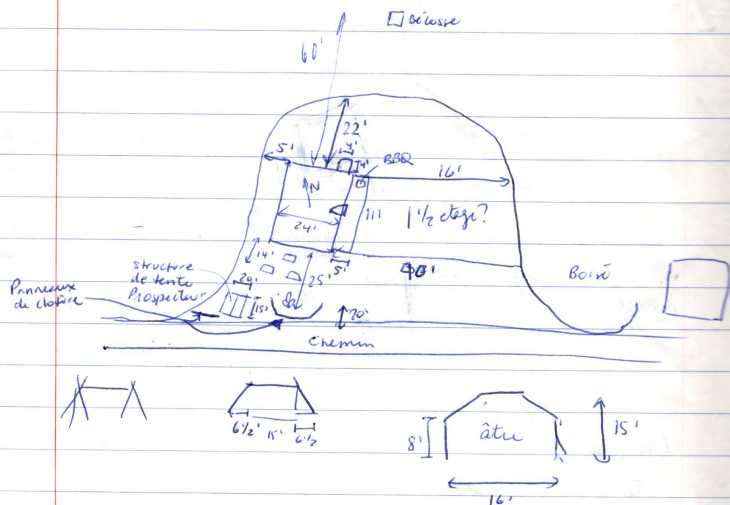 Bécosse
60'
22'
5'
4'
4'
BBQ
16'
N
24'
1 1/2 etage?
14'
5'
25'
structure
de tente
Prospecteur
Panneaux
de cloture
15'
20'
Boisé
Chemin
6 1/2'
15'
6 1/2
8'
âtre
15'
16'